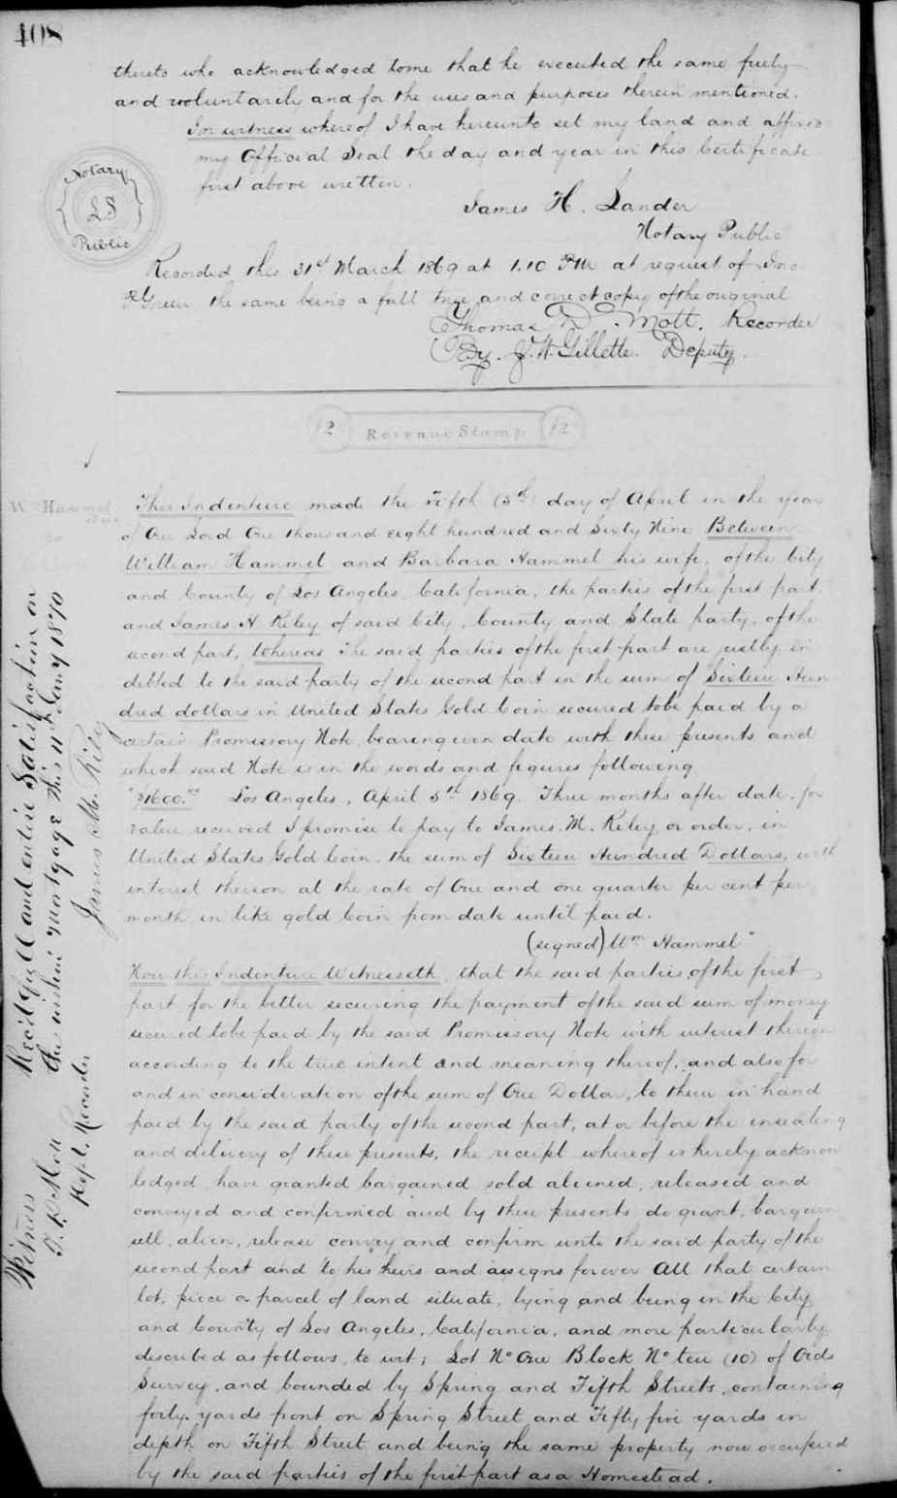 408
thereto who acknowledged tome that he executed the same freely
and voluntarily and for the uses and purposes therein mentioned.
In witness whereof I have hereunto set my hand and affixed
my Official Seal the day and year in this Certificate
first above written.
Notary
LS
Public
James H. Lander
Notary Public
Recorded this 31st March 1869 at 1.10 PM at request of
Green the same being a full true and correct copy of the original
Thomas D. Mott. Recorder
By. J. W. Gillette. Deputy.
12 Revenue Stamp 12
This Indenture made the Fifth (5th) day of April in the year
of Our Lord One thousand eight hundred and Sixty Nine Between
William Hammel and Barbara Hammel his wife, of the City
and County of Los Angeles, California, the parties of the first part
and James H Riley of said City, County and State party, of the
second part, Whereas The said parties of the first part are justly in
debted to the said party of the second part in the sum of Sixteen Hun
dred dollars in United States Gold Coin secured tobe paid by a
certain Promissory Note, bearing even date with these presents and
which said Note is in the words and figures following
"$1600.00 Los Angeles, April 5th 1869. Three months after date, for
value received I promise to pay to James. M. Riley or order, in
United States Gold Coin, the sum of Sixteen Hundred Dollars, with
interest thereon at the rate of One and one quarter per cent per
month in like gold Coin from date until paid.
(signed) Wm Hammel"
Now this Indenture Witnesseth, that the said parties of the first
part for the better securing the payment of the said sum of money
secured tobe paid by the said Promissory Note with interest thereon
according to the true intent and meaning thereof, and also for
and in consideration of the sum of One Dollar, to them in hand
paid by the said party of the second part, at or before the ensealing
and delivery of these presents, the receipt whereof is hereby acknow
ledged, have granted bargained sold aliened, released and
conveyed and confirmed and by these presents do grant, bargain
sell, alien, release convey and confirm unto the said party of the
second part and to his heirs and assigns forever All that certain
lot, piece or parcel of land situate, lying and being in the City
and County of Los Angeles, California, and more particularly
described as follows, to wit; Lot No One Block No ten (10) of Ords
Survey, and bounded by Spring and Fifth Streets, containing
forty yards front on Spring Street and Fifty five yards in
depth on Fifth Street and being the same property now occupied
by the said parties of the first part as a Homestead.
W Hammel
to
Rec'd full and entire Satisfaction on
the within Mortgage this 11th Jany 1870
James M. Riley
Witness
T. D. Mott
Recorder